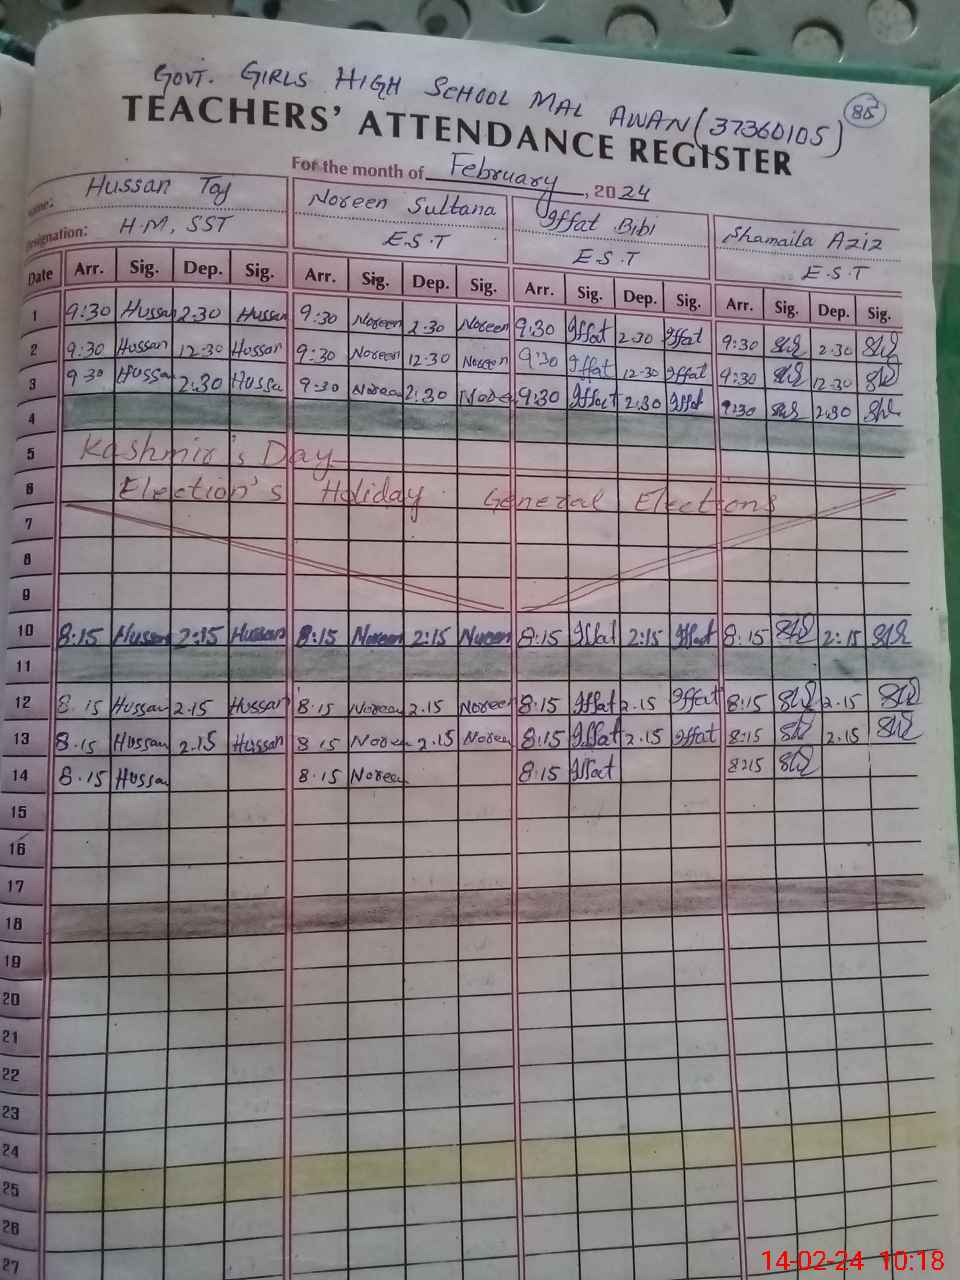 GOVT. GIRLS HIGH SCHOOL MAL AWAN (37360105) 85
TEACHERS' ATTENDANCE REGISTER
For the month of February, 2024
Name: Hussan Taj Noreen Sultana Iffat Bibi Shamaila Aziz
Designation: H.M, SST E.S.T E.S.T E.S.T
Date Arr. Sig. Dep. Sig. Arr. Sig. Dep. Sig. Arr. Sig. Dep. Sig. Arr. Sig. Dep. Sig.
1 9:30 Hussan 2:30 Hussan 9:30 Noreen 2:30 Noreen 9:30 Iffat 2:30 Iffat 9:30 2:30
2 9:30 Hussan 12:30 Hussan 9:30 Noreen 12:30 Noreen 9:30 Iffat 12:30 Iffat 9:30 12:30
3 9:30 Hussan 2:30 Hussa 9:30 Noreen 2:30 Noree 9:30 Iffat 2:30 Iffat 9:30 2:30
4
5 Kashmir's Day
6 Election's Holiday General Elections
7
8
9
10 8:15 Hussan 2:15 Hussan 8:15 Noreen 2:15 Noreen 8:15 Iffat 2:15 Iffat 8:15 2:15
11
12 8:15 Hussan 2.15 Hussan 8:15 Noreen 2.15 Noreen 8:15 Iffat 2.15 Iffat 8:15 2.15
13 8.15 Hussan 2.15 Hussan 8.15 Noreen 2.15 Noreen 8:15 Iffat 2.15 Iffat 8:15 2.15
14 8.15 Hussan 8.15 Noreen 8:15 Iffat 8:15
15
16
17
18
19
20
21
22
23
24
25
26
27
14-02-24 10:18